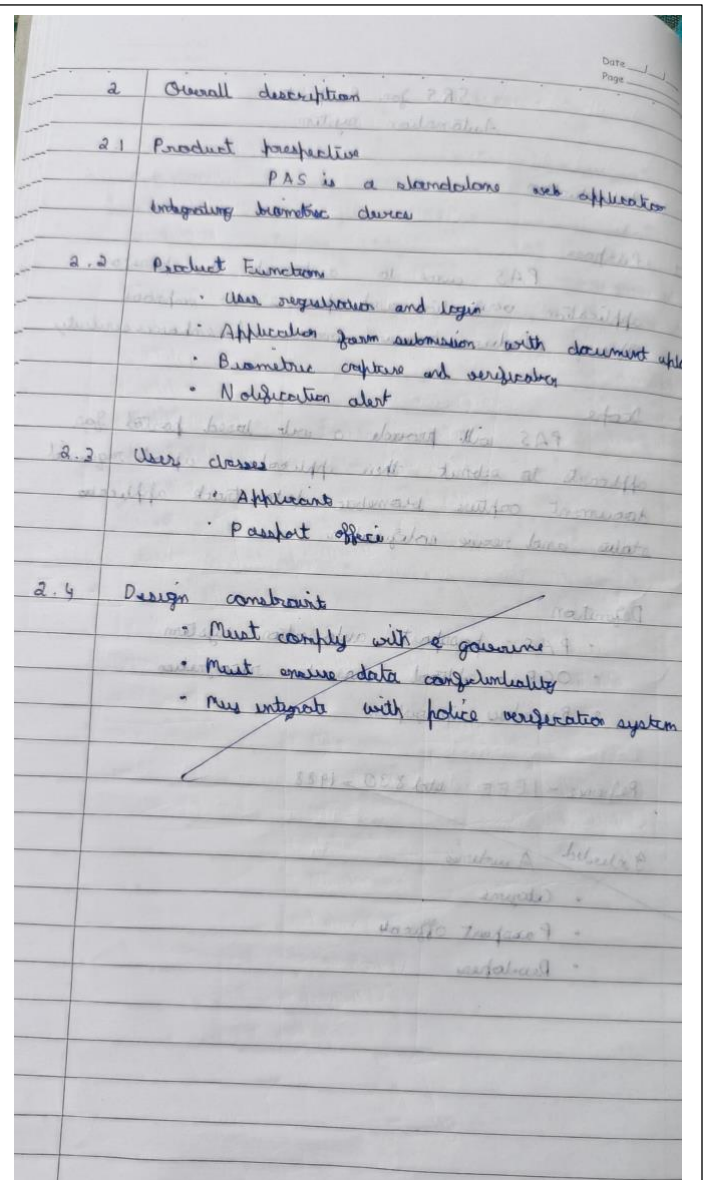 Date
Page
2 Overall description
2.1 Product prespective
PAS is a standalone web application
integrating biometric device
2.2 Product Function
• User registration and login
• Application form submission with document uplo
• Biometric capture and verification
• Notification alert
2.3 User classes
• Applicant
• Passport office
2.4 Design constraint
• Must comply with governme
• Must ensure data confidentiality
• Mus integrate with police verification system